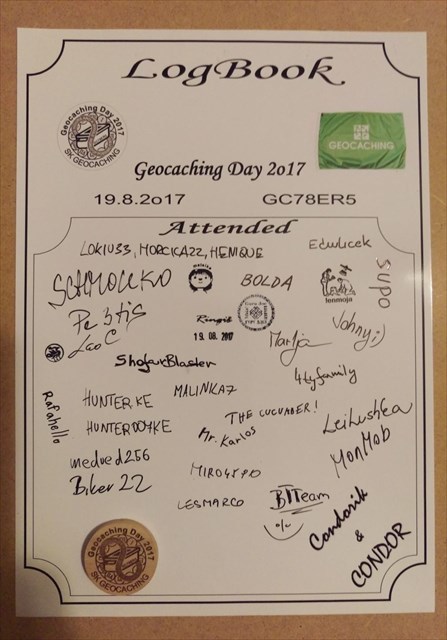 LogBook
Geocaching Day 2017
SK GEOCACHING
GEOCACHING
Geocaching Day 2017
19.8.2017 GC78ER5
Attended
LOKIU33, MORCICA22, HENIQUE
Edulicek
SCHMOLKKO
BOLDA
tonmoja
SUPO
Pe3tis
LaoC
Ringit
19. 08. 2017
Martja
Johny;)
ShofarBlaster
4tyfamily
Rafahello
HUNTER.KE
MALINKA7
HUNTERDOYKE
THE CUCUMBER!
Mr. Karlos
LeiLushka
MonMob
medved256
MIRO4590
Biker22
LESMARCO
BTTeam
Condorik
&
CONDOR
Geocaching Day 2017
SK GEOCACHING